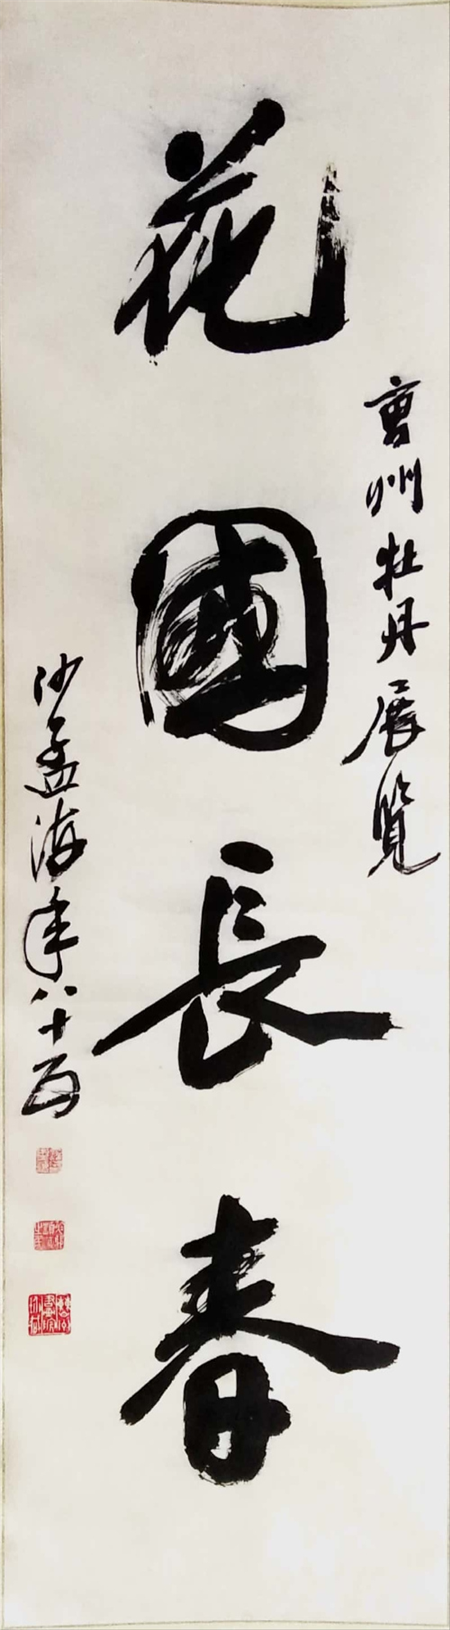 曹州牡丹展覽
花國長春
沙孟海年八十五